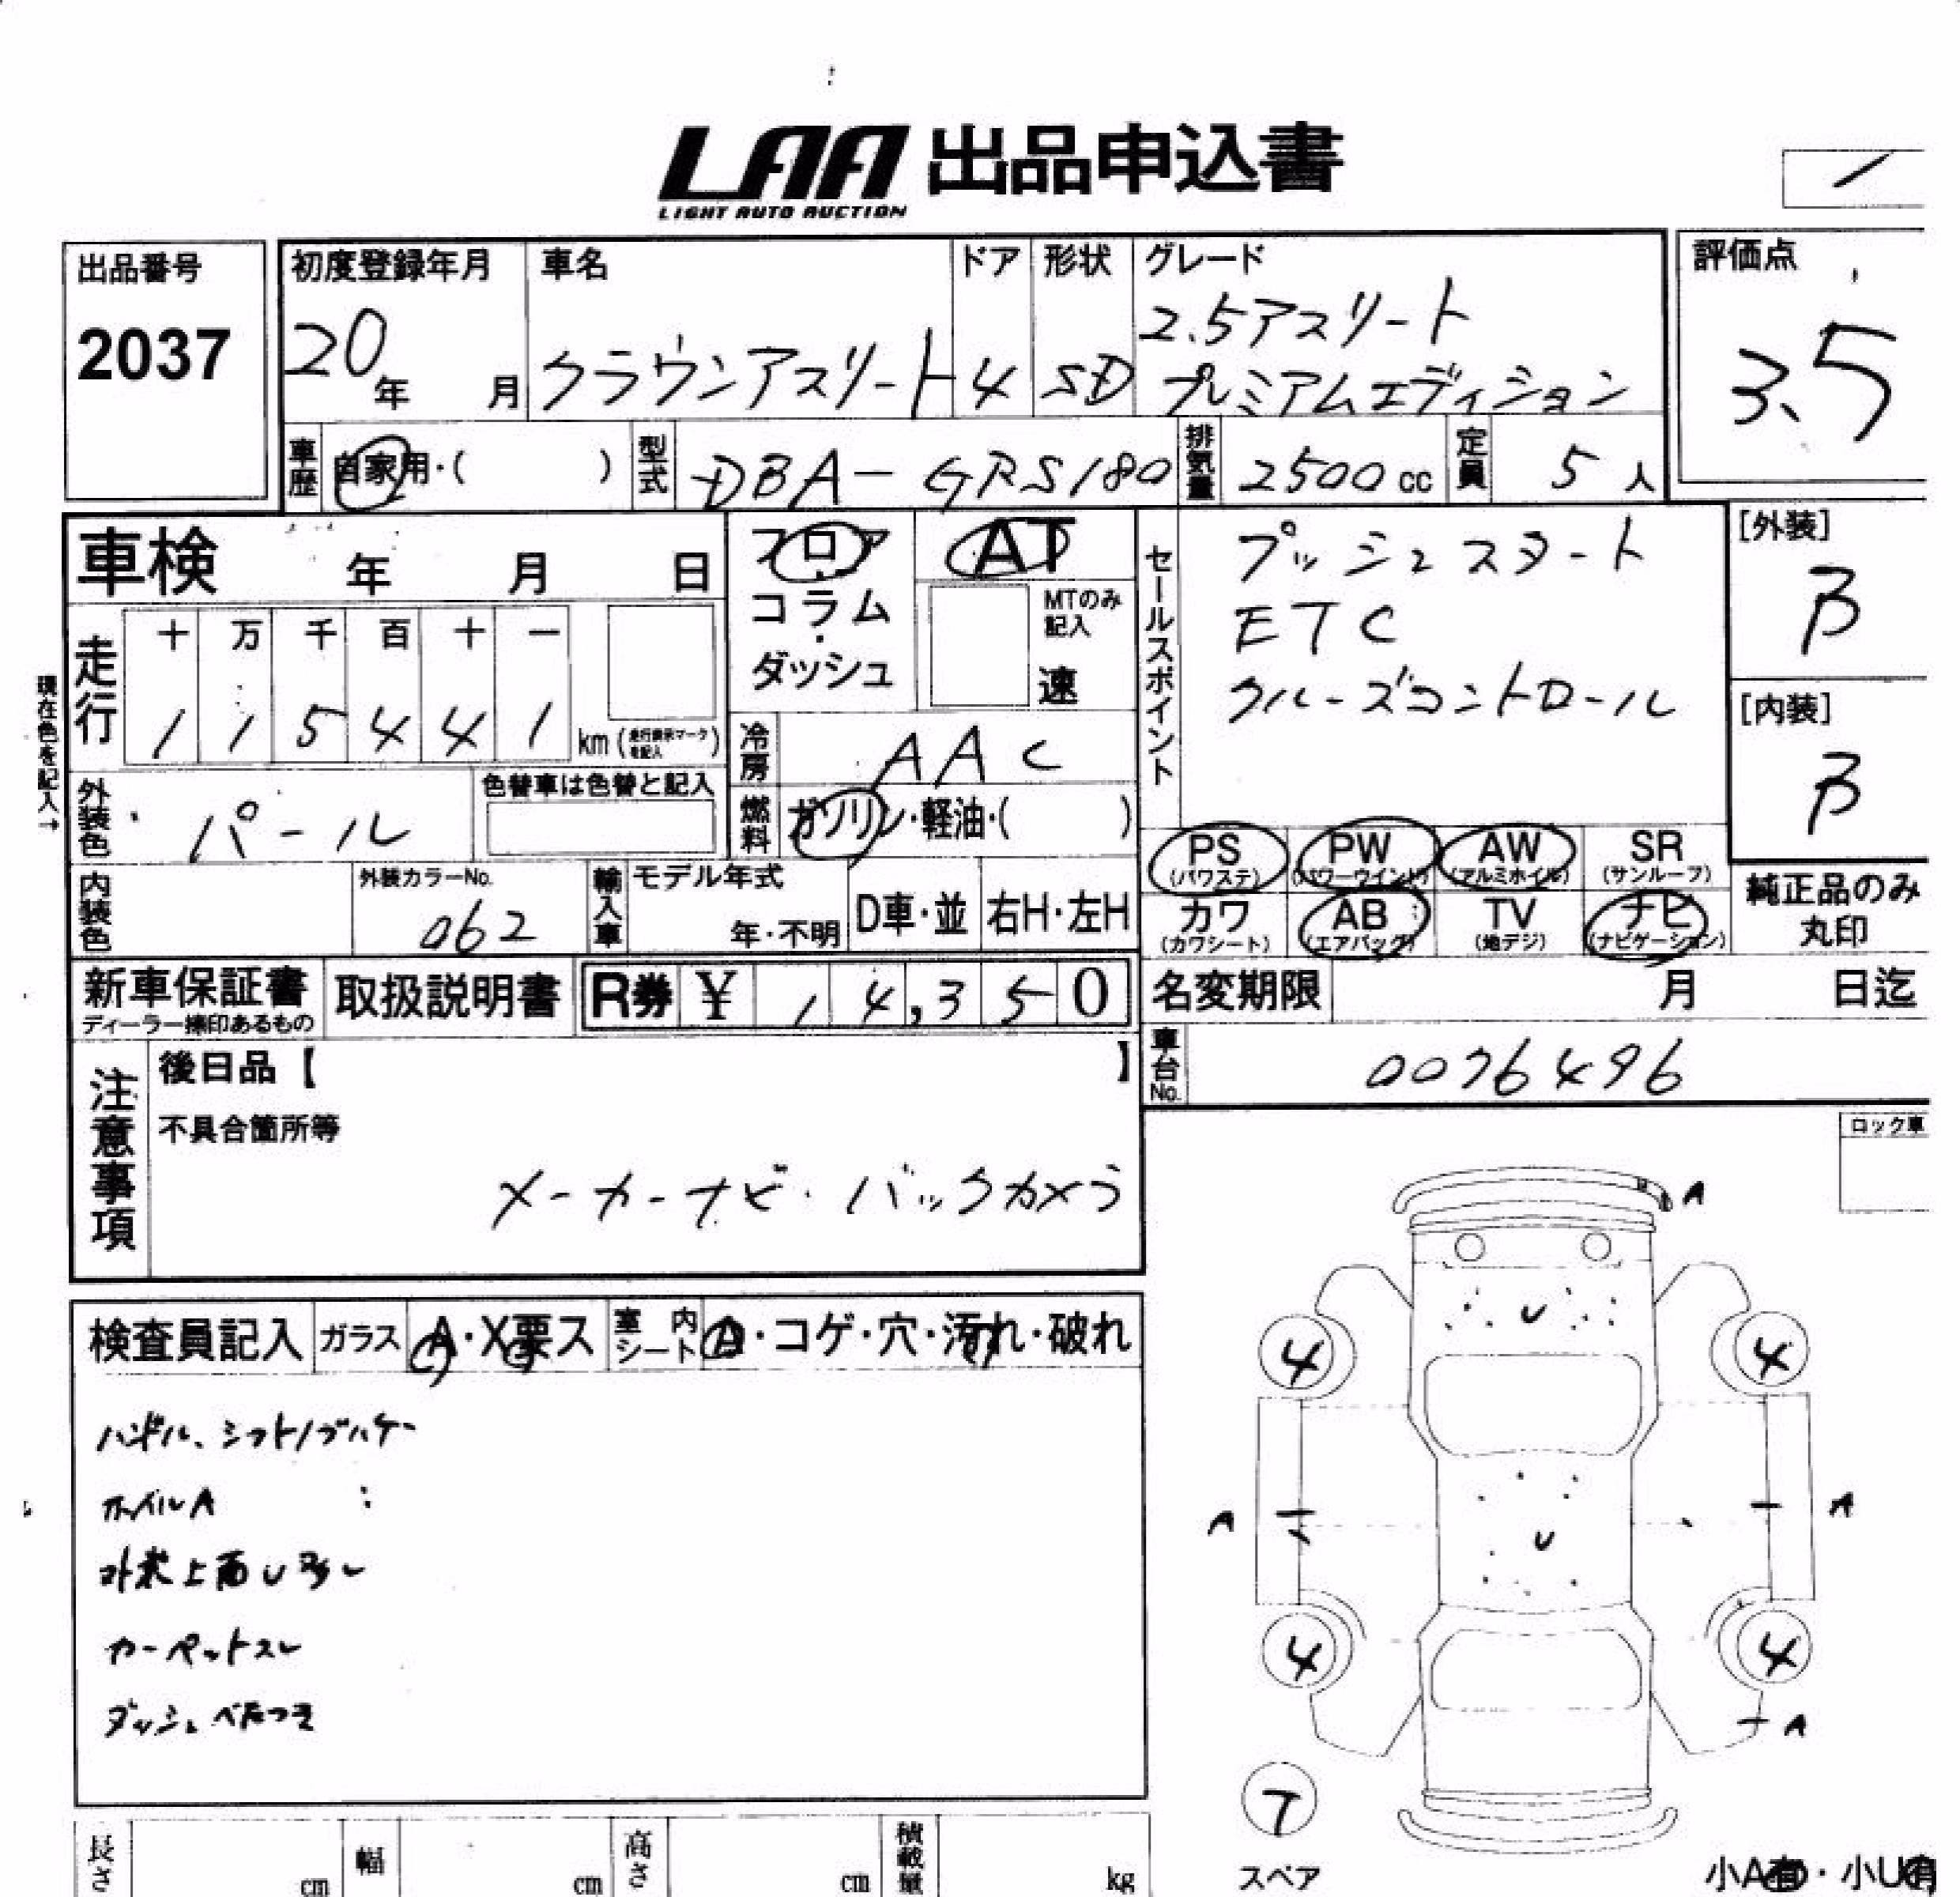 LAA 出品申込書
LIGHT AUTO AUCTION
出品番号
2037
初度登録年月
20年 月
車名
クラウンアスリート
ドア
4
形状
SD
グレード
2.5アスリート
プレミアムエディション
評価点
3.5
車歴 自家用・( )
型式 DBA-GRS180
排気量 2500cc
定員 5人
車検 年 月 日
フロア
コラム
ダッシュ
AT
MTのみ
記入
速
セールスポイント
プッシュスタート
ETC
クルーズコントロール
[外装]
B
[内装]
B
現在色を記入→
走行
十 万 千 百 十 一
1 1 5 4 4 1 km
冷房 AAC
燃料 ガソリン・軽油・( )
外装色 パール
色替車は色替と記入
内装色
外装カラーNo.
062
輸入車
モデル年式
年・不明
D車・並
右H・左H
PS PW AW SR
(パワステ) (パワーウインド) (アルミホイル) (サンルーフ)
カワ AB TV ナビ
(カワシート) (エアバック) (地デジ) (ナビゲーション)
純正品のみ
丸印
新車保証書
ディーラー捺印あるもの
取扱説明書
R券 ¥ 14,350
名変期限 月 日迄
車台No. 0076496
注意事項
後日品【 】
不具合箇所等
メーカーナビ・バックカメラ
ロック車
検査員記入
ガラス A・X要ス
室内シート
・コゲ・穴・汚れ・破れ
ハンドル、シフトノブハゲ
ホイルA
外装上面U多し
カーペットスレ
ダッシュべたつき
A
U
4 4
A A
U
4 4
A
7
スペア
小A有・小U有
長さ cm
幅 cm
高さ cm
積載量 kg